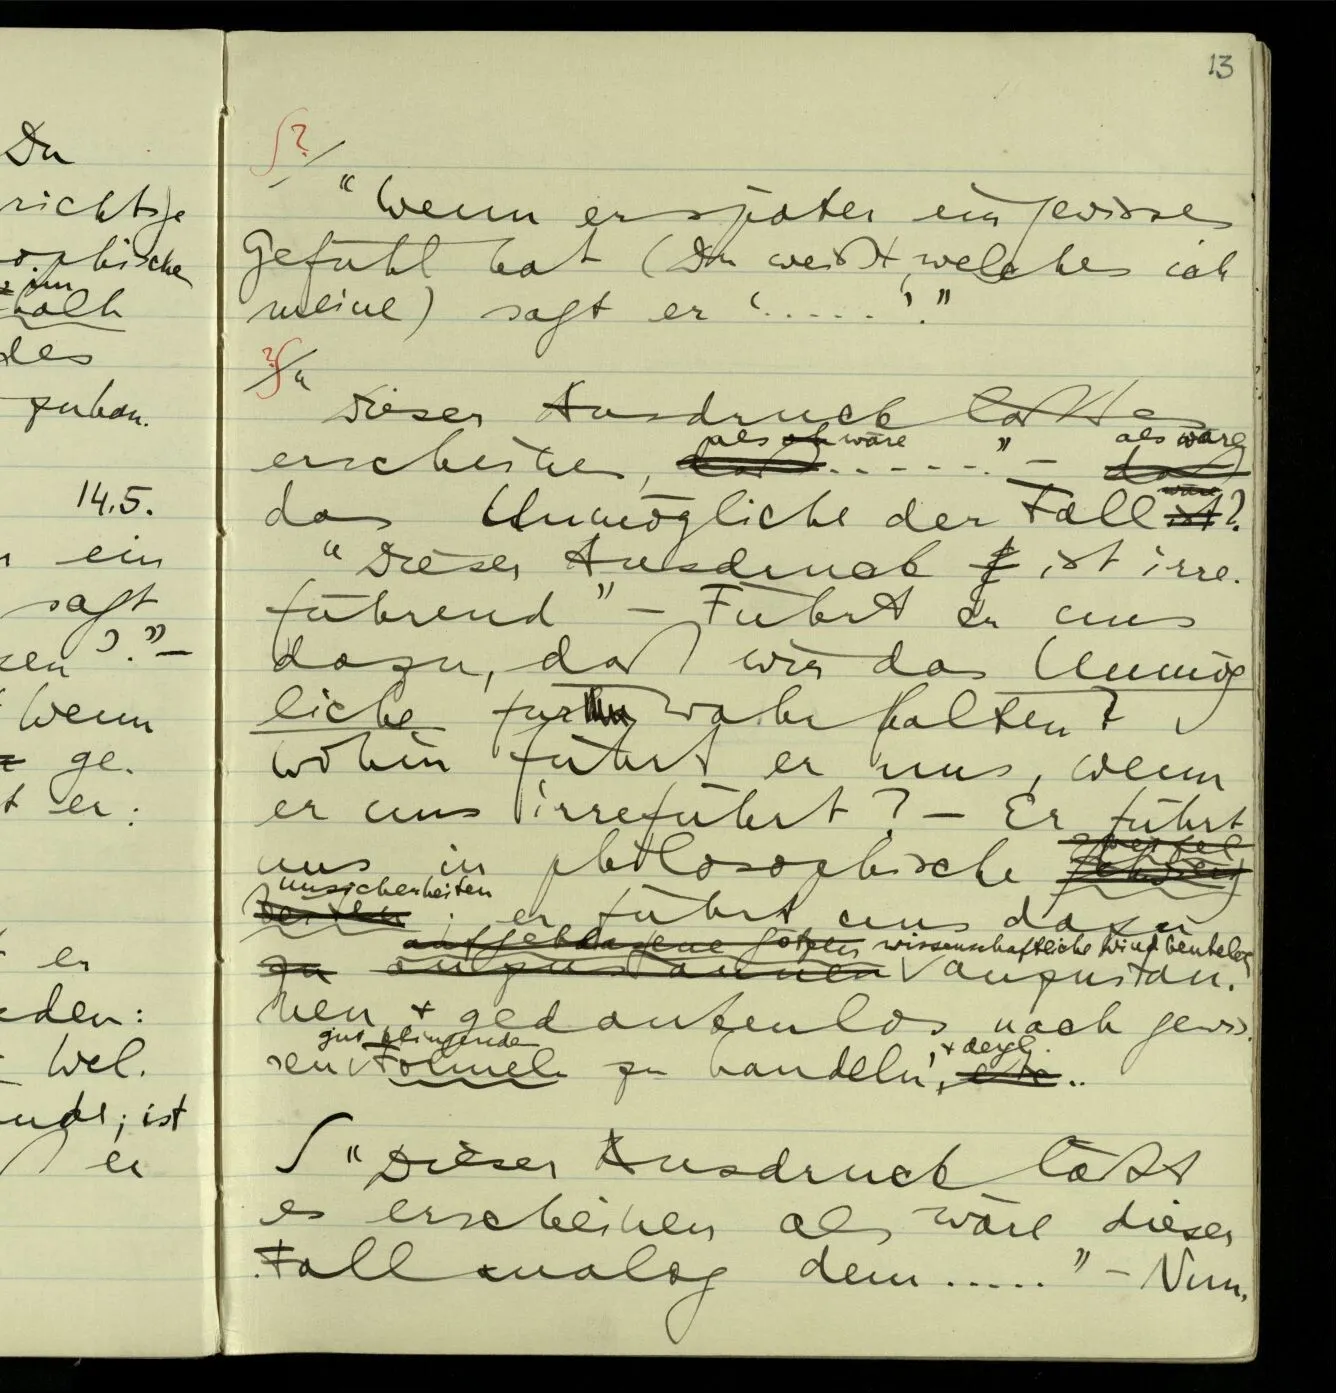 Du
richtige
sophische
im
halb
des
zuhan.
14.5.
ein
sagt
sen'."–
Wenn
ge.
t er:
er
eden:
Wel.
ist
er
13
∫?/
"Wenn er später ein gewisses
Gefühl hat (Du weißt, welches ich
meine) sagt er '.....'."
?∫/"
Dieser Ausdruck läßt es
als ob wäre " als wäre
erscheinen, daß ....... – daß
wäre
das Unmögliche der Fall ist?
"Dieser Ausdruck f ist irre.
führend" – Führt er uns
dazu, daß wir das Unmög
liche für wahr halten?
wohin führt er uns, wenn
er uns irreführt? – Er führt
uns in philosophische
unsicherheiten
; er führt uns dazu
aufgeblasene Götzen wissenschaftliche Windbeutel
zu anzustaunen √ anzustau.
nen + gedankenlos nach gewis.
gut klingenden + dergl.
sen √ Formeln zu handeln, etc..
∫ "Dieser Ausdruck läßt
es erscheinen als wäre dieser
Fall analog dem ....." – Nun,